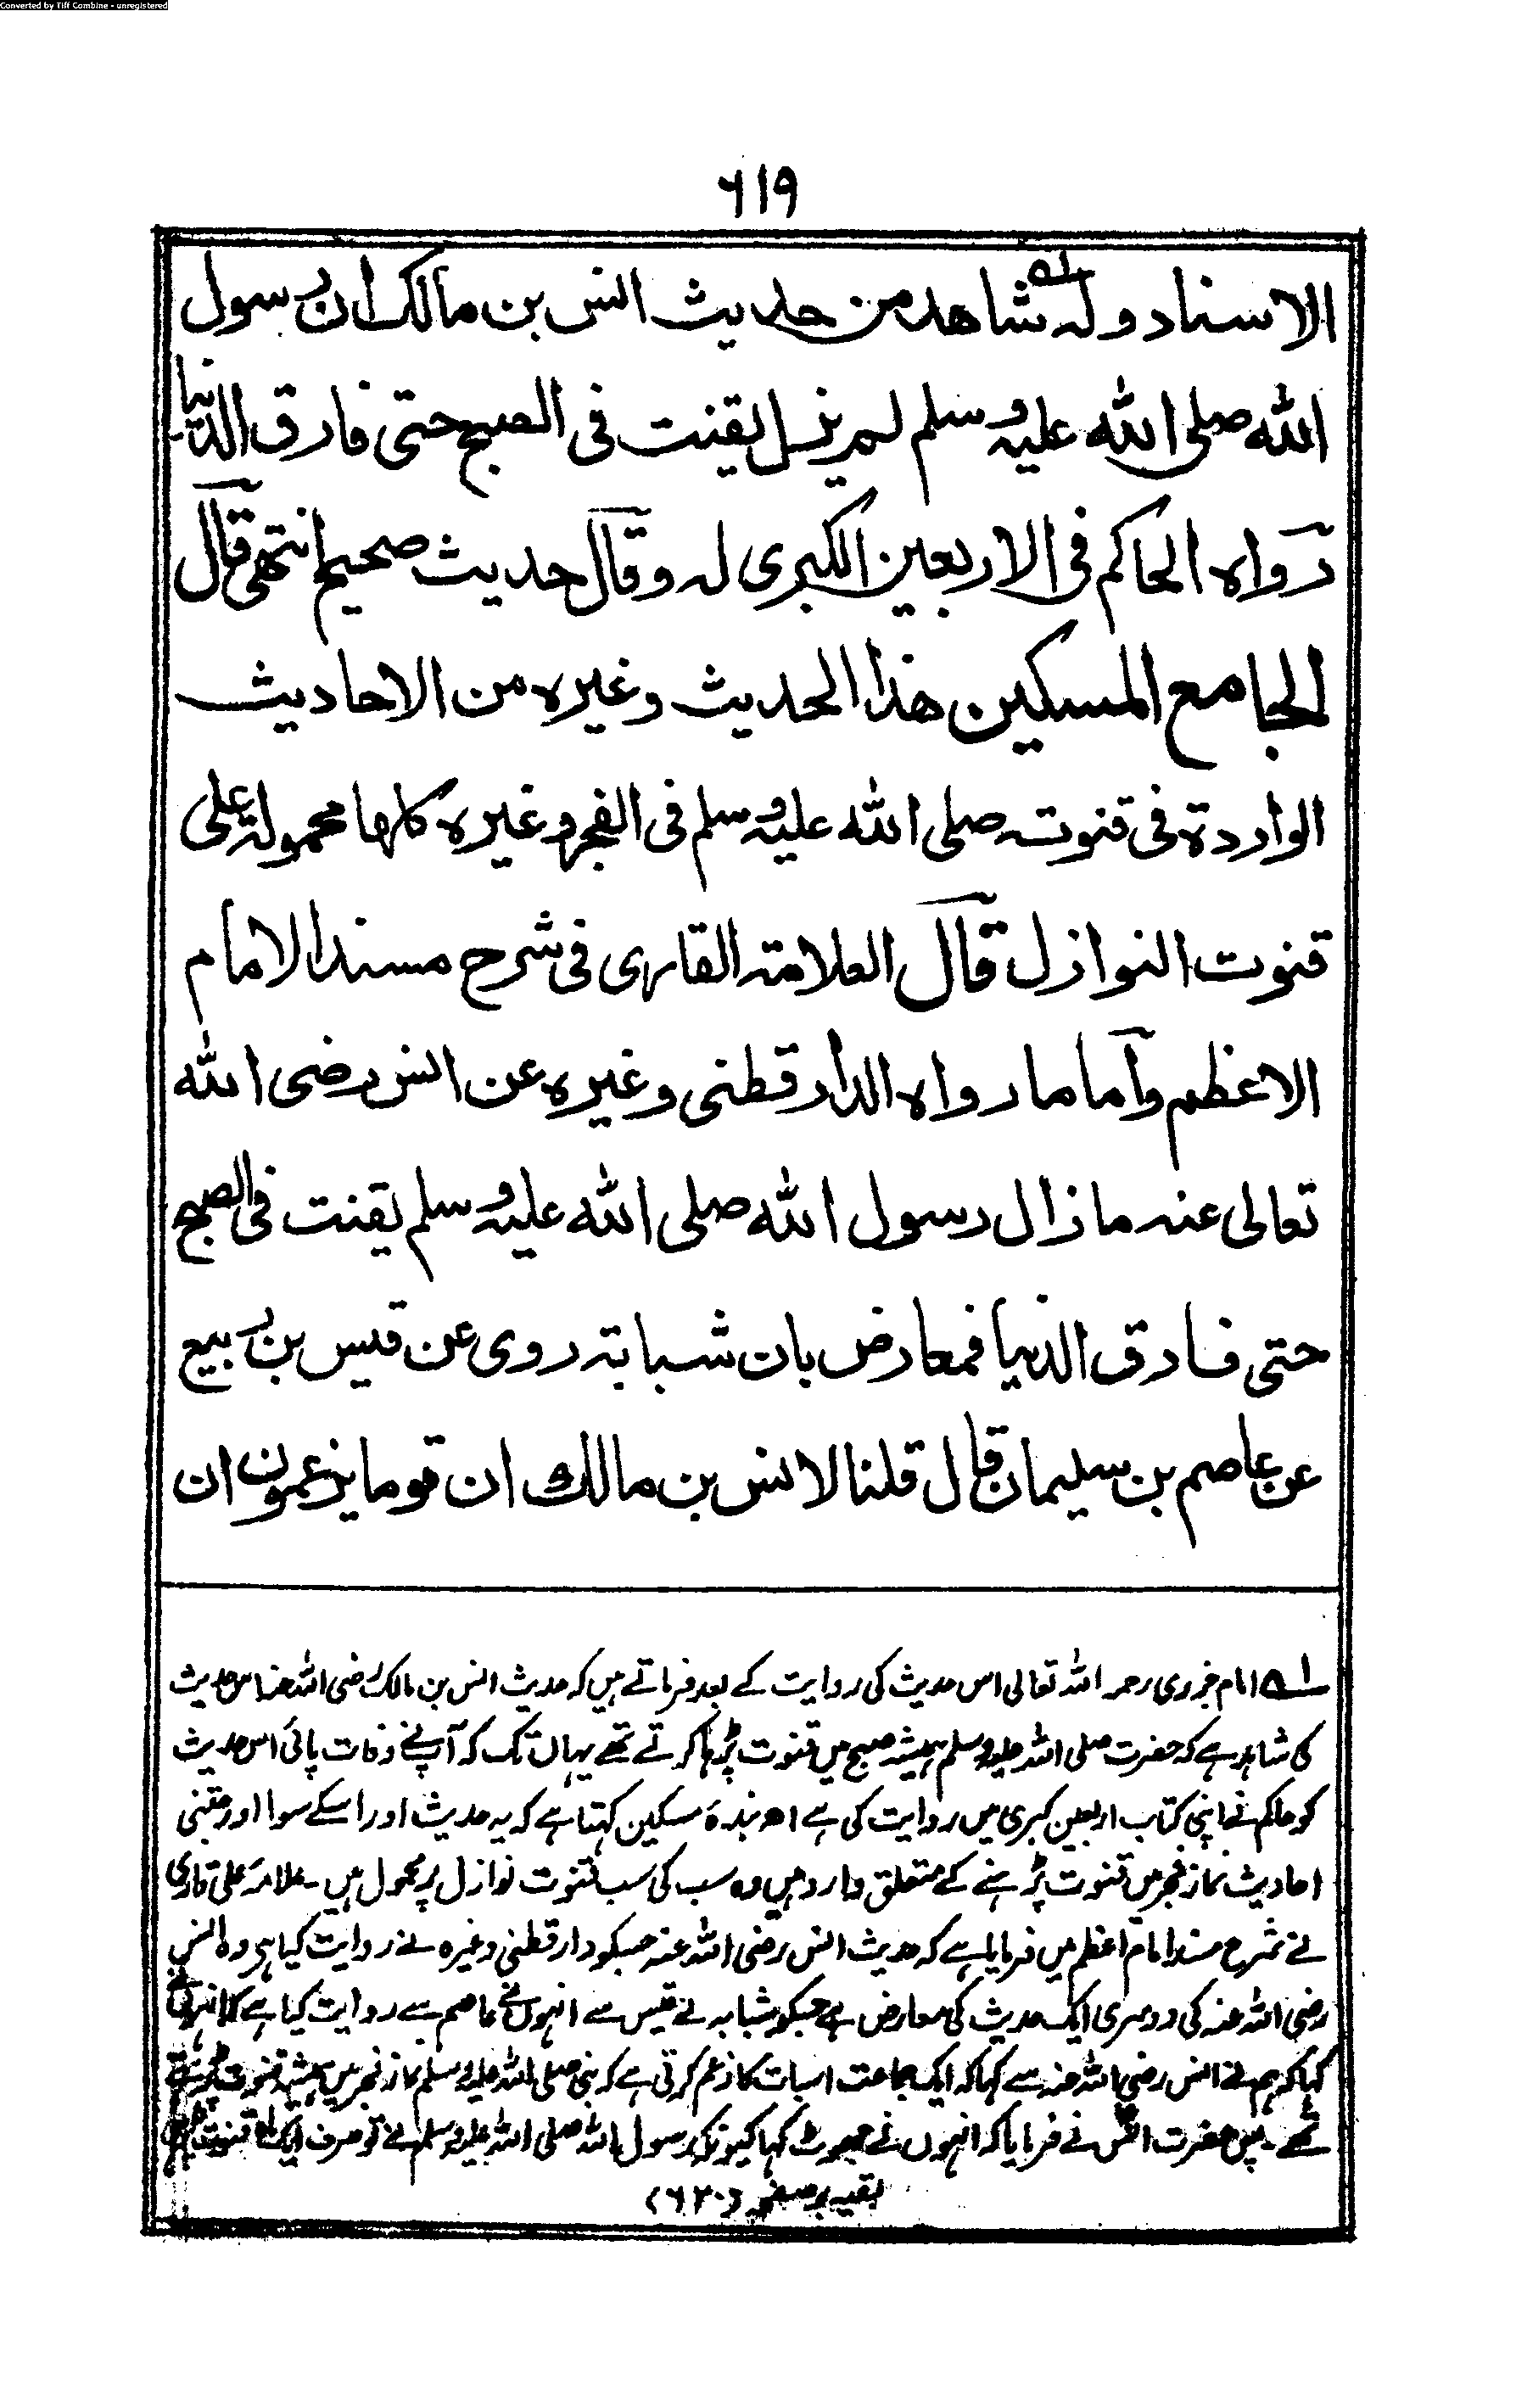 Converted by Tiff Combine - unregistered
٦١٩
الاسناد وله شاهد من حديث انس بن مالك ان رسول
الله صلى الله عليه وسلم لم يزل يقنت فى الصبح حتى فارق الدنيا
رواه الحاكم فى الاربعين الكبرى له وقال حديث صحيح انتهى قال
الجامع المسكين هذا الحديث وغيره من الاحاديث
الواردة فى قنوته صلى الله عليه وسلم فى الفجر وغيره كلها محمولة على
قنوت النوازل قال العلامة القارى فى شرح مسند الامام
الاعظم وآما ما رواه الدار قطنى وغيره عن انس رضى الله
تعالى عنه ما زال رسول الله صلى الله عليه وسلم يقنت فى الصبح
حتى فارق الدنيا فمعارض بان شبابة روى عن قيس بن ربيع
عن عاصم بن سليمان قال قلنا لانس بن مالك ان قوما يزعمون ان
۱ه امام جزری رحمہ اللہ تعالی اس حدیث کی روایت کے بعد فرماتے ہیں کہ حدیث انس بن مالک رضی اللہ عنہ اس حدیث
کی شاہد ہے کہ حضرت صلی اللہ علیہ وسلم ہمیشہ صبح میں قنوت پڑہا کرتے تھے یہاں تک کہ آپ نے وفات پائی اس حدیث
کو حاکم نے اپنی کتاب اربعین کبری میں روایت کی ہے اھ بندۂ مسکین کہتا ہے کہ یہ حدیث اور اسکے سوا اور جتنی
احادیث نماز فجر میں قنوت پڑہنے کے متعلق وارد ہیں وہ سب کی سب قنوت نوازل پر محمول ہیں ۔ علامہ علی قاری
نے شرح مسند امام اعظم میں فرمایا ہے کہ حدیث انس رضی اللہ عنہ جسکو دار قطنی وغیرہ نے روایت کیا ہی وہ انس
رضی اللہ عنہ کی دوسری ایک حدیث کی معارض ہے جسکو شبابہ نے قیس سے انہوں نے عاصم سے روایت کیا ہے کہ انہوں نے
کہا کہ ہم نے انس رضی اللہ عنہ سے کہا کہ ایک جماعت اسبات کا زعم کرتی ہے کہ نبی صلی اللہ علیہ وسلم نماز فجر میں ہمیشہ قنوت پڑہتے
تھے ۔ پس حضرت انس نے فرمایا کہ انہوں نے جھوٹ کہا کیونکہ رسول اللہ صلی اللہ علیہ وسلم نے تو صرف ایک ماہ قنوت
بقیہ بر صفحہ (٦٢٠)